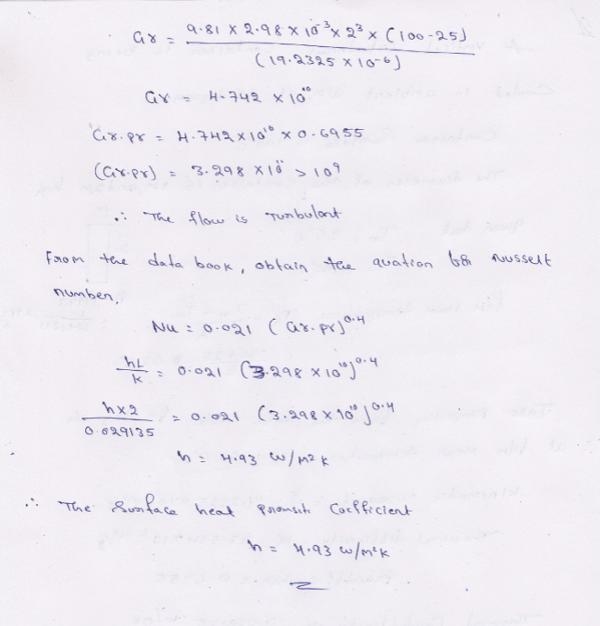 Gr = 9.81 × 2.98 × 10⁻³ × 2³ × (100-25)
(19.2325 × 10⁻⁶)
Gr = 4.742 × 10¹⁰
Gr.pr = 4.742 × 10¹⁰ × 0.6955
(Gr.pr) = 3.298 × 10¹⁰ > 10⁹
∴ The flow is Turbulant
From the data book, obtain the quation for nusselt
number.
Nu = 0.021 (Gr.pr)^0.4
hL/k = 0.021 (3.298 × 10¹⁰)^0.4
h×2/0.029135 = 0.021 (3.298 × 10¹⁰)^0.4
h = 4.93 w/m²k
∴ The Surface heat Coefficient
h = 4.93 w/m²k